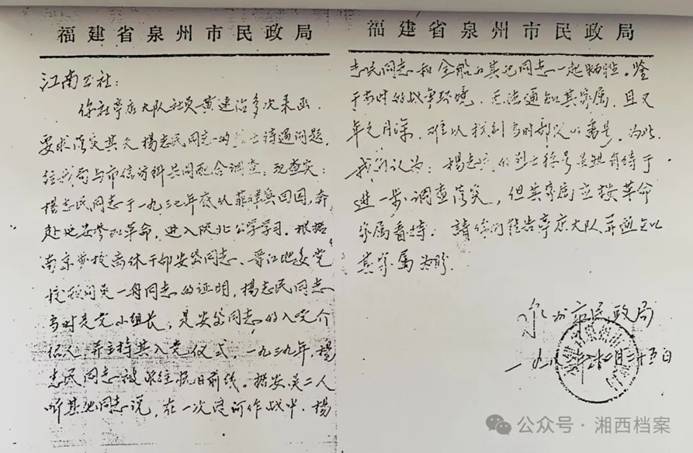 福建省泉州市民政局
江南公社:
你社亭店大队社员黄速治多次来函,
要求落实其夫杨志民同志的烈士待遇问题,
经我局与市信访科共同配合调查,现查实:
杨志民同志于一九三七年底从菲律宾回国,奔
赴延安参加革命,进入陕北公学学习。根据
南京学校离休干部安岱同志、晋江地委党
校顾问吴一舟同志的证明,杨志民同志
当时是党小组长,是安岱同志的入党介
绍人,并主持其入党仪式,一九三九年,杨
志民同志被派往抗日前线。据安、吴二人
听其他同志说,在一次渡河作战中,杨
福建省泉州市民政局
志民同志和全船的其他同志一起牺牲。鉴
于当时的战争环境,无法通知其家属,且又
年久月深,难以找到当时部队的番号,为此,
我们认为:杨志民的烈士称号虽然有待于
进一步调查落实,但其家属应按革命
家属看待。请你们转告亭店大队并通知
其家属为盼。
泉州市民政局
一九八 年十二月二十五日
公众号·湘西档案